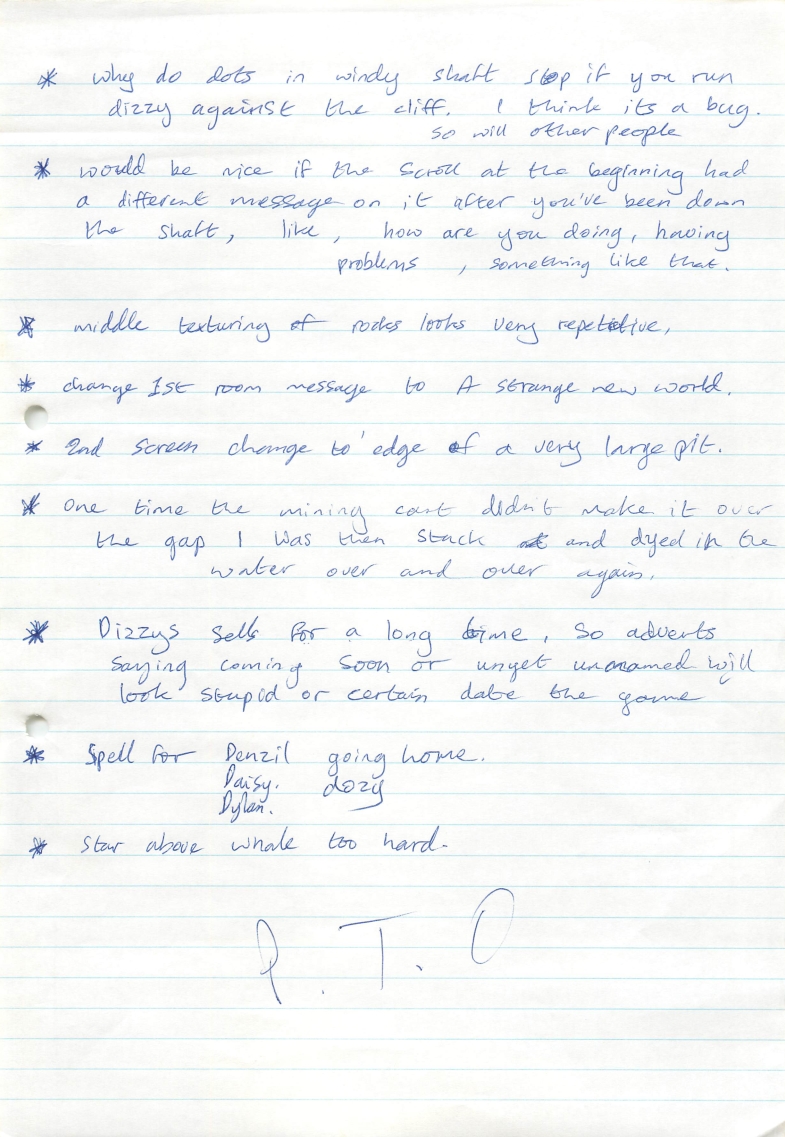 * why do dots in windy shaft stop if you run
dizzy against the cliff. I think its a bug.
so will other people
* would be nice if the scroll at the beginning had
a different message on it after you've been down
the shaft, like, how are you doing, having
problems, something like that.
* middle texturing of rocks looks very repetitive,
* change 1st room message to A strange new world.
* 2nd screen change to edge of a very large pit.
* one time the mining cart didn't make it over
the gap I was then stuck and dyed in the
water over and over again.
* Dizzys sells for a long time, so adverts
saying coming soon or unyet unnamed will
look stupid or certain date the game
* Spell for Denzil going home.
Daisy. dozy
Dylan.
* star above whale too hard.
P.T.O